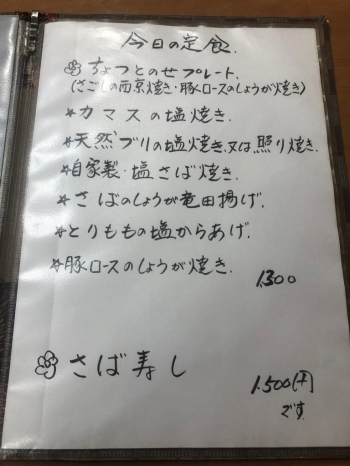 今日の定食.
ちょっとのせプレート.
(さごしの西京焼き・豚ロースのしょうが焼き)
★カマスの塩焼き.
★天然ブリの塩焼き又は照り焼き.
★自家製・塩さば焼き.
★さばのしょうが竜田揚げ.
★とりももの塩からあげ.
★豚ロースのしょうが焼き.
1.300
さば寿し
1.500(円)
です.